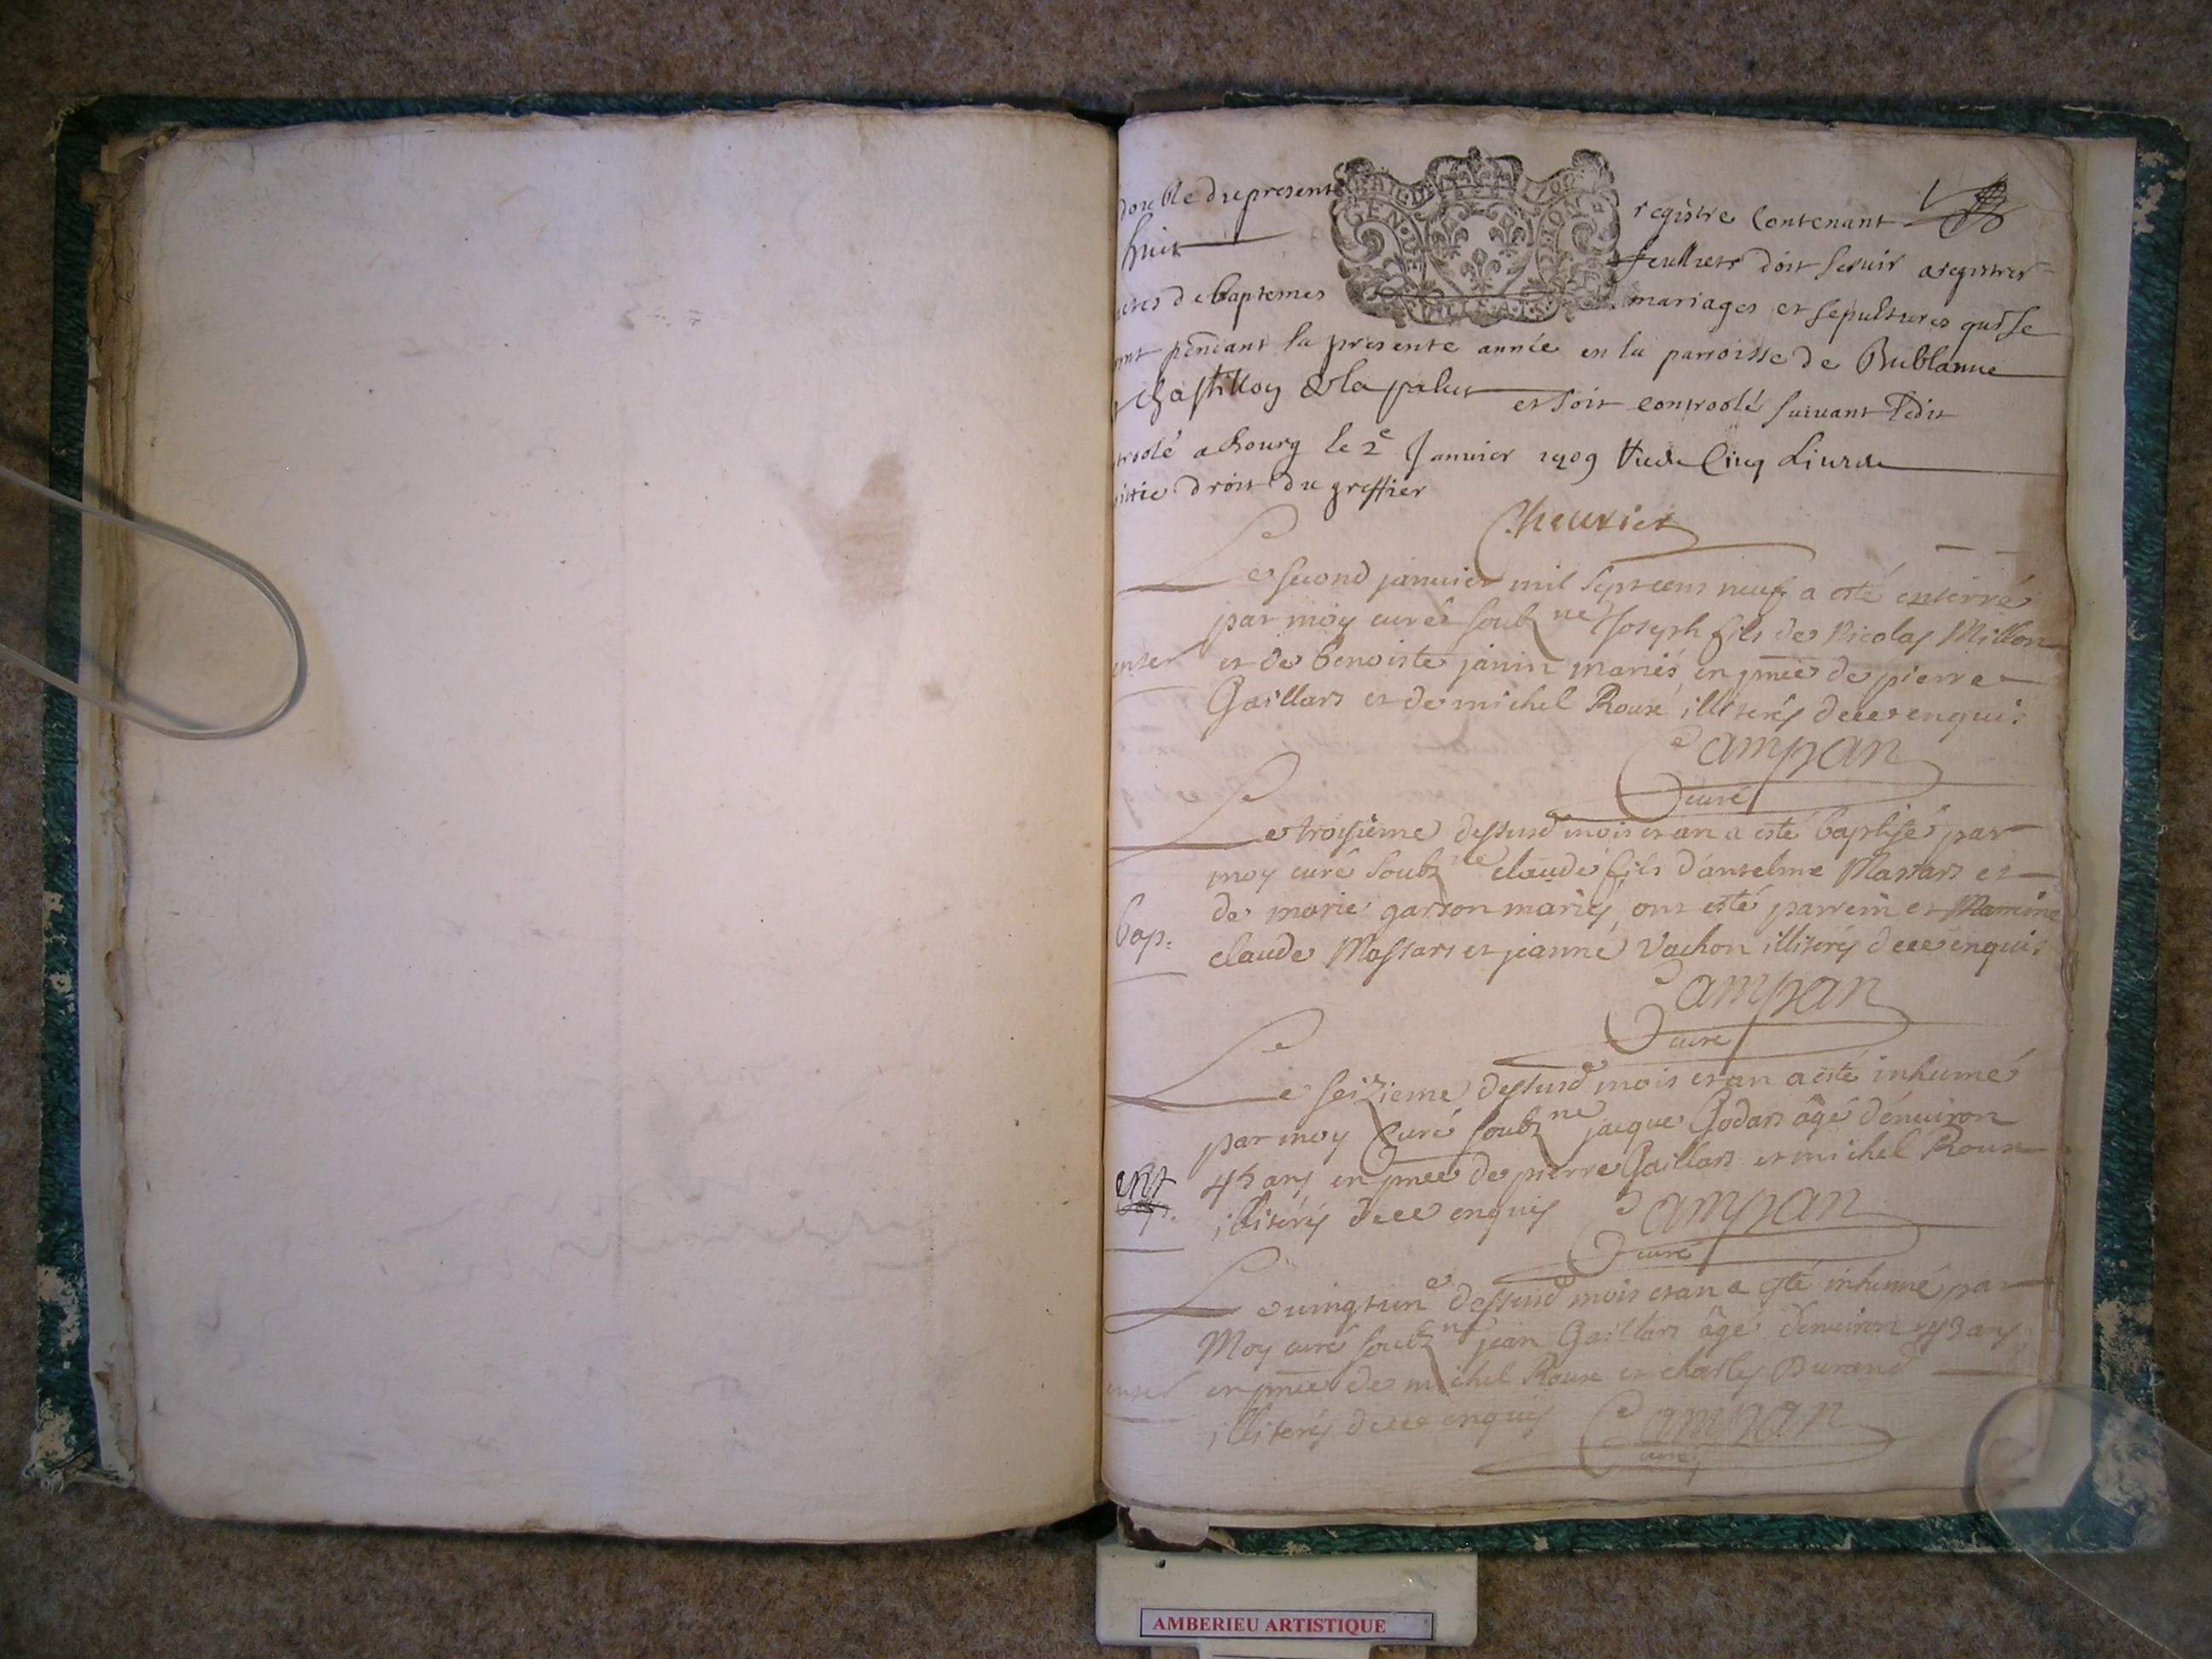 double du present registre Contenant
huit feullets doit servir a registrer
actes de baptemes mariages et sepultures qui se
ont pendant la presente année en la parroisse de Bublanne
Chastillon & la palus et soit controolé suivant Ledit
troolé a bourg le 2e Janvier 1709 Cinq Livres
droit du greffier
Cheurier
Le second januier mil sept cens neuf a esté enterré
par moy curé soubzne Joseph fils de Nicolas Millon
enter
et de benoiste janin mariés en pnce de pierre
Gaillars et de michel Roux illiterés de ce enquis
Campan
curé
Le troisieme dessusd mois et an a esté baptisé par
moy curé soubzne claude fils d'anselme Massars et
de marie garson mariés ont esté parrein et Marreine
bap.
claude Massars et jeanne Vachon illiterés de ce enquis
Campan
curé
Le seizieme dessusd mois et an a esté inhumé
par moy Curé soubzne jacque Godars âgé d'enuiron
ent
45 ans en pnce de pierre Gaillars et michel Roux
illiterés de ce enquis
Campan
curé
Le uingt un e dessusd mois et an a esté inhumé par
Moy curé soubzne jean Gaillars âgé d'enuiron 43 ans
enter
en pnce de michel Roux et charles Durand
illiterés de ce enquis
Campan
curé
AMBERIEU ARTISTIQUE